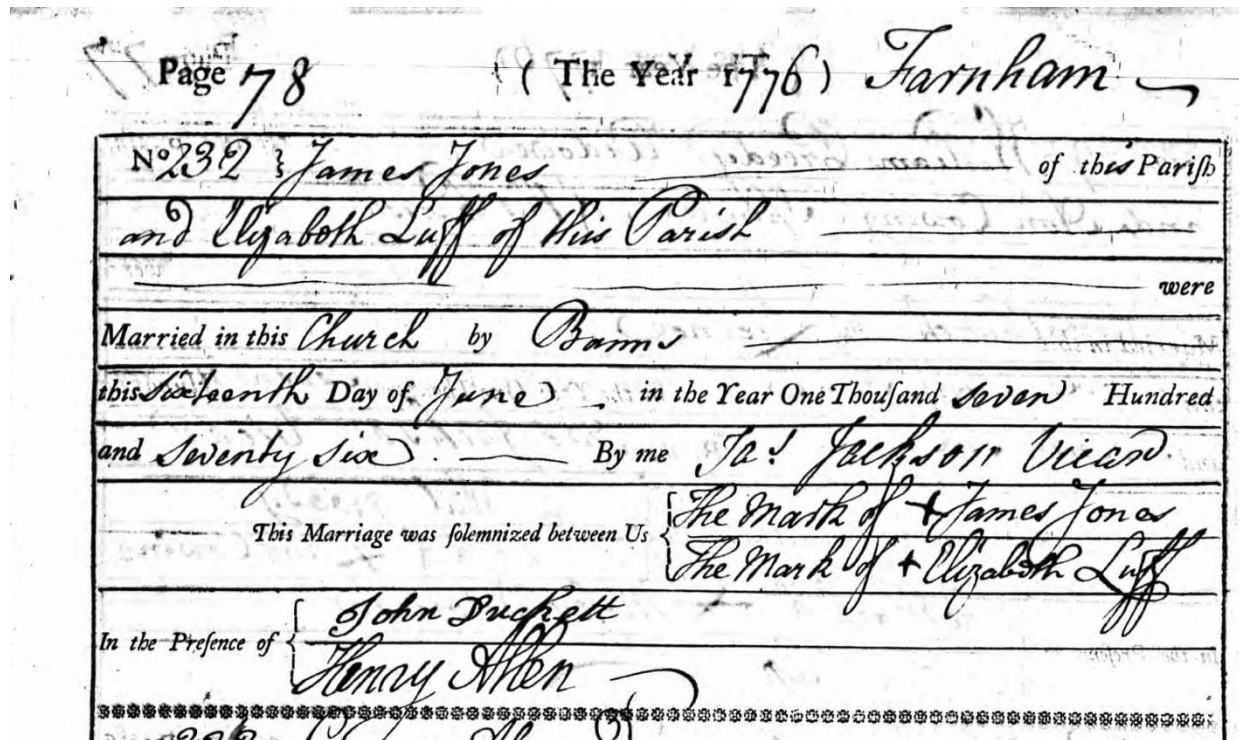 Page 78 ( The Year 1776 ) Farnham
No 232 } James Jones of this Pariſh
and Elizaboth Luff of this Parish
were
Married in this Church by Banns
this sixteenth Day of June in the Year One Thouſand seven Hundred
and Seventy six. By me Jas Jackson Vicar
This Marriage was ſolemnized between Us { The Mark of + James Jones
The Mark of + Elizaboth Luff
In the Preſence of { John Duckett
Henry Allen